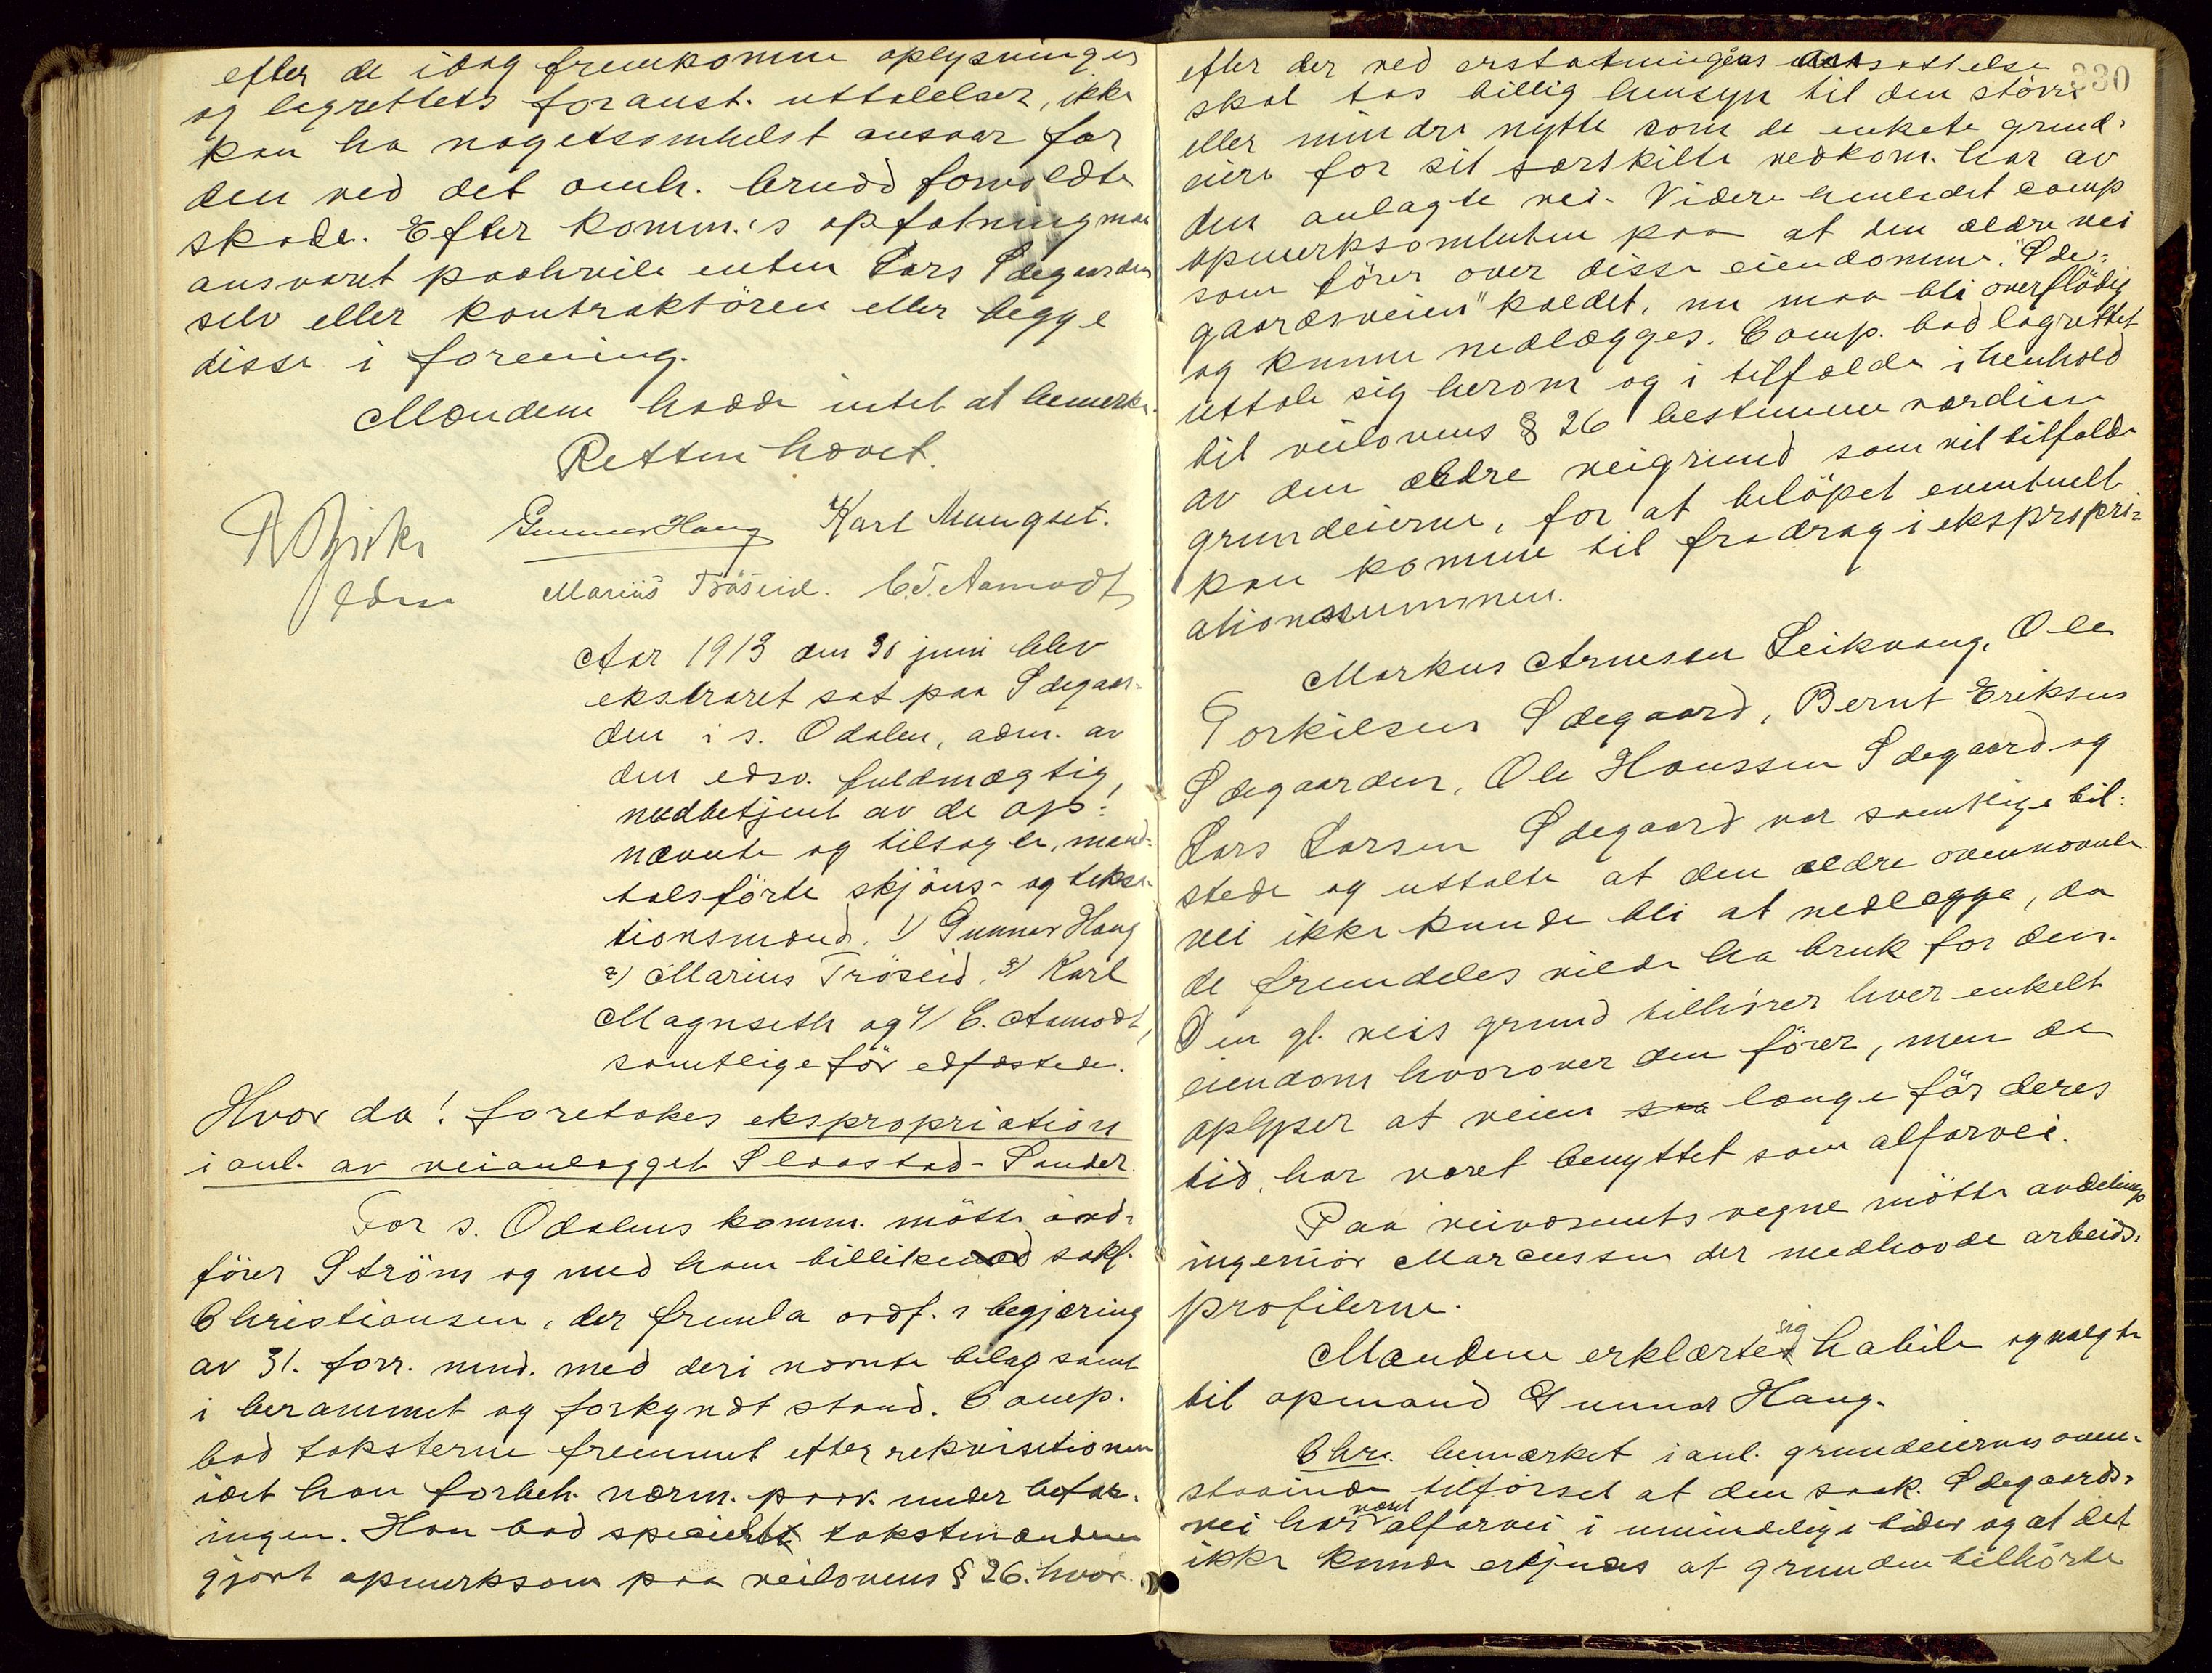 efter de idag fremkomne oplysninger
og lagrettets foranst. uttalelser, ikke
kan ha nogetsomhelst ansvar for
den ved det omh. brudd forvoldte
skade. Efter komm.'s opfatning maa
ansvaret paahvile enten Lars Ødegaarden
selv eller kontraktören eller begge
disse i forening.
Mændene hadde intet at bemerke.
Retten hævet.
Gunnar Haug Karl Mungset.
edsv. Marius Tröseid. C. T. Aamodt
Aar 1913 den 30 juni blev
ekstraret sat paa Ødegaar-
den i s. Odalen, adm. av
den edsv. fuldmægtig,
medbetjent av de op-
nævnte og tilsagte, mand-
talsförte skjöns- og takst-
tionsmænd, 1/ Gunnar Haug
2) Marius Tröseid, 3/ Karl
Magnseth og 4/ C. Aamodt,
samtlige för edfæstede.
Hvor da! foretokes ekspropriation
i anl. av veianlægget Slaastad-Sander.
For s. Odalens komm. mötte ord-
förer Ström og med ham tillike sakf.
Christiansen, der fremla ordf.s begjæring
av 31. forr. mnd. med deri nævnte bilag samt
i berammet og forkyndt stand. Comp.
bad taksterne fremmet efter rekvisitionen
idet han forbeh. nærm. paav. under befar-
ingen. Han bad specielt takstmændene
gjort opmerksom paa veilovens § 26. hvor-
330
efter der ved erstatningens ansættelse
skal tas billig hensyn til den större
eller mindre nytte som de enkelte grund-
eiere for sit særskilte vedkom. har av
den anlagte vei. Videre henledet comp
opmerksomheten paa at den ældre vei
som förer over disse eiendomme. "Øde-
gaardsveien" kaldet, nu maa bli overflödig
og kunne nedlægges. Comp. bad lagrettet
uttale sig herom og i tilfælde i henhold
til veilovens § 26 bestemme værdien
av den ældre veigrund som vil tilfalde
grundeierne, for at belöpet eventuelt
kan komme til fradrag i ekspropri-
ationssummen.
Markus Arnesen Leikvang, Ole
Torkilsen Ødegaard, Bernt Eriksen
Ødegaarden, Ole Hanssen Ødegaard og
Lars Larsen Ødegaard var samtlige til-
stede og uttalte at den ældre ovennævnte
vei ikke kunde bli at nedlægge, da
de fremdeles vilde ha bruk for den.
Den gl. veis grund tilhörer hver enkelt
eiendom hvorover den förer, men de
oplyser at veien saa længe för deres
tid, har været benyttet som alfarvei.
Paa veivæsenets vegne mötte avdelings
ingeniör Marcussen der medhavde arbeids-
profilerne.
Mændene erklærte sig habile og valgte
til opmand Gunnar Haug.
Chr. bemærket i anl. grundeiernes oven-
staaende tilförsel at den saak. Ødegaards-
vei har vært alfarvei i umindelige tider og at det
ikke kunde erkjendes at grunden tilhörte